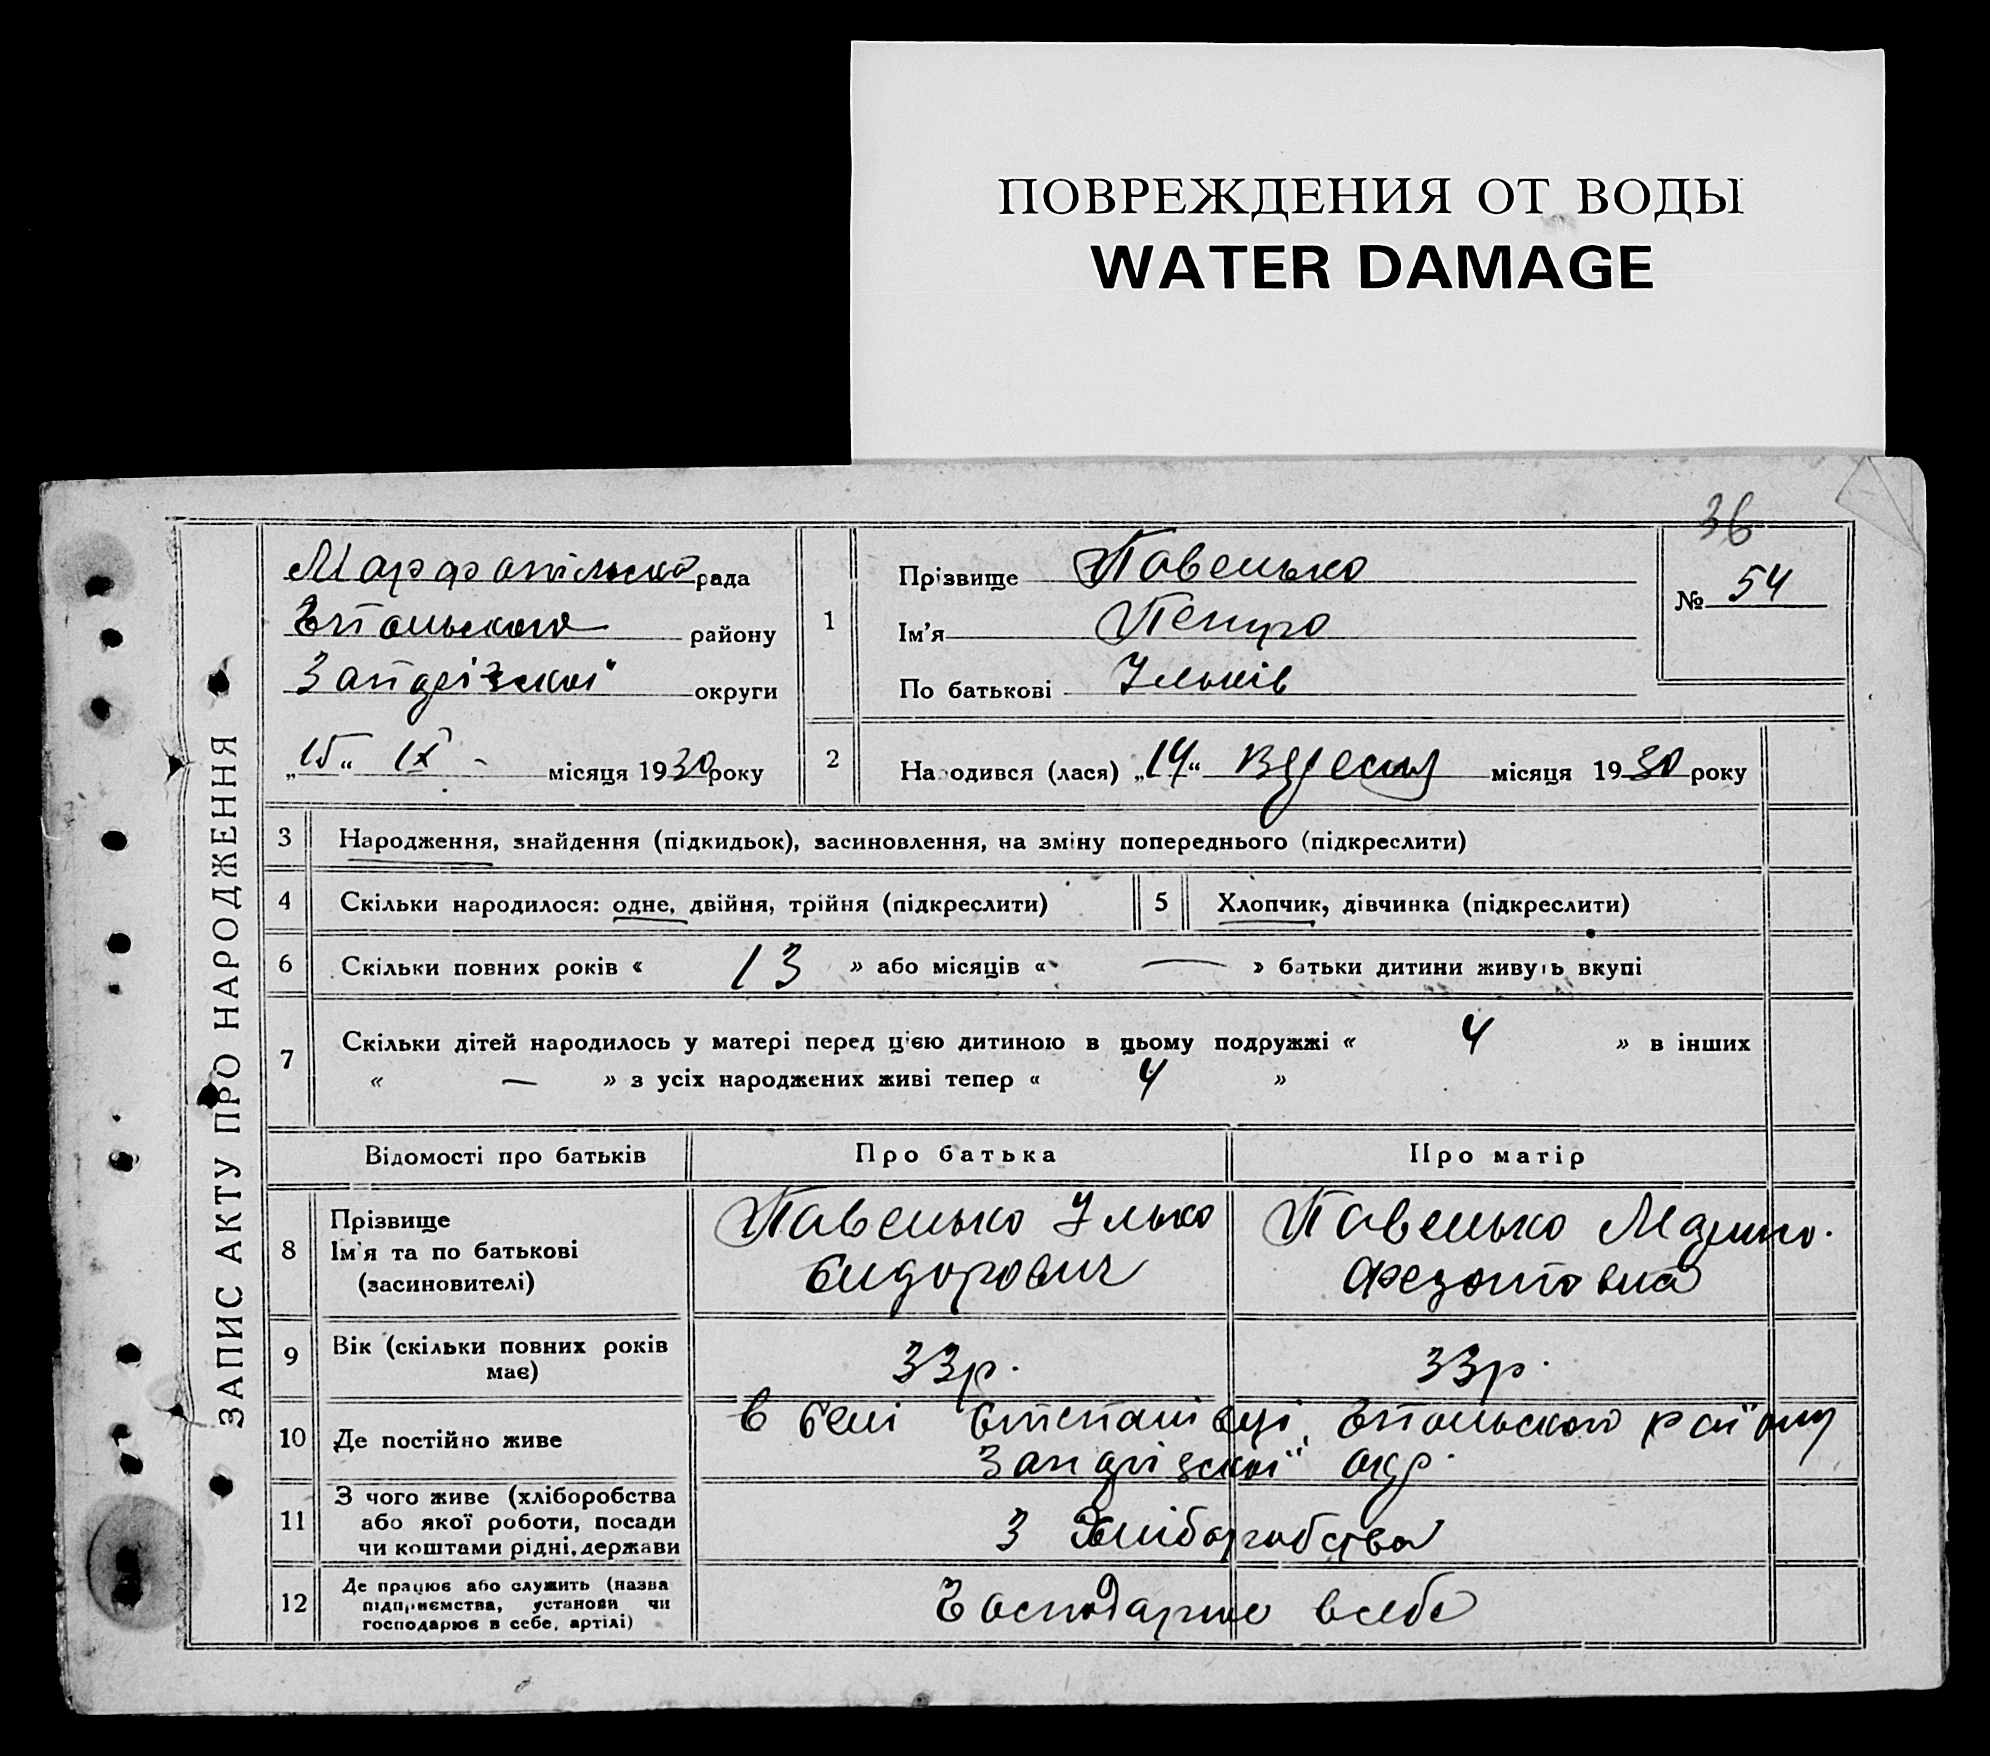 ПОВРЕЖДЕНИЯ ОТ ВОДЫ
WATER DAMAGE
36
ЗАПИС АКТУ ПРО НАРОДЖЕННЯ
рада
району
округи
„15“ IX - місяця 1930 року
1
Прізвище Павенько
Ім'я
По батькові Ільків
№ 54
2
Народився (лася) „14“ Вересня місяця 1930 року
3 Народження, знайдення (підкидьок), засиновлення, на зміну попереднього (підкреслити)
4 Скільки народилося: одне, двійня, трійня (підкреслити)
5 Хлопчик, дівчинка (підкреслити)
6 Скільки повних років « 13 » або місяців « — » батьки дитини живуть вкупі
7 Скільки дітей народилось у матері перед цією дитиною в цьому подружжі « 4 » в інших
« — » з усіх народжених живі тепер « 4 »
Відомості про батьків
Про батька
Про матір
8 Прізвище
Ім'я та по батькові
(засиновителі)
Павенько Ілько
Сидорович
Павенько
9 Вік (скільки повних років
має)
33р.
33р.
10 Де постійно живе
в селі району
окр.
11 З чого живе (хліборобства
або якої роботи, посади
чи коштами рідні, держави
З Хліборобства
12 Де працює або служить (назва
підприємства, установи чи
господарює в себе, артілі)
Господарює в себе